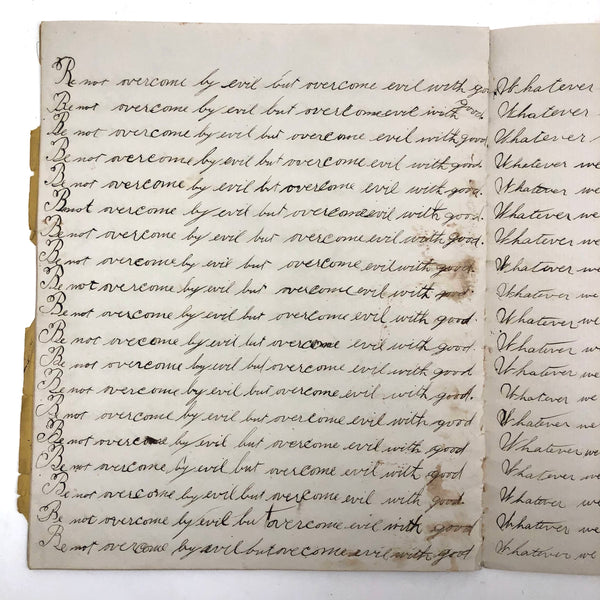 Be not overcome by evil but overcome evil with goo
Be not overcome by evil but overcome evil with good
Be not overcome by evil but overcome evil with good
Be not overcome by evil but overcome evil with good
Be not overcome by evil but overcome evil with good.
Be not overcome by evil but overcome evil with good.
Be not overcome by evil but overcome evil with good.
Be not overcome by evil but overcome evil with good
Be not overcome by evil but overcome evil with good
Be not overcome by evil but overcome evil with good
Be not overcome by evil but overcome evil with good.
Be not overcome by evil but overcome evil with good
Be not overcome by evil but overcome evil with good.
Be not overcome by evil but overcome evil with good
Be not overcome by evil but overcome evil with good
Be not overcome by evil but overcome evil with good
Be not overcome by evil but overcome evil with good
Be not overcome by evil but overcome evil with good
Be not overcome by evil but ovecome evil with good
Whatever
Whatever
Whatever
Whatever we
Whatever we
Whatever we
Whatever we
Whatever we
Whatever we
Whatever we
Whatever we
Whatever we
Whatever we
Whatever we
Whatever we
Whatever we
Whatever we
Whatever we
Whatever we